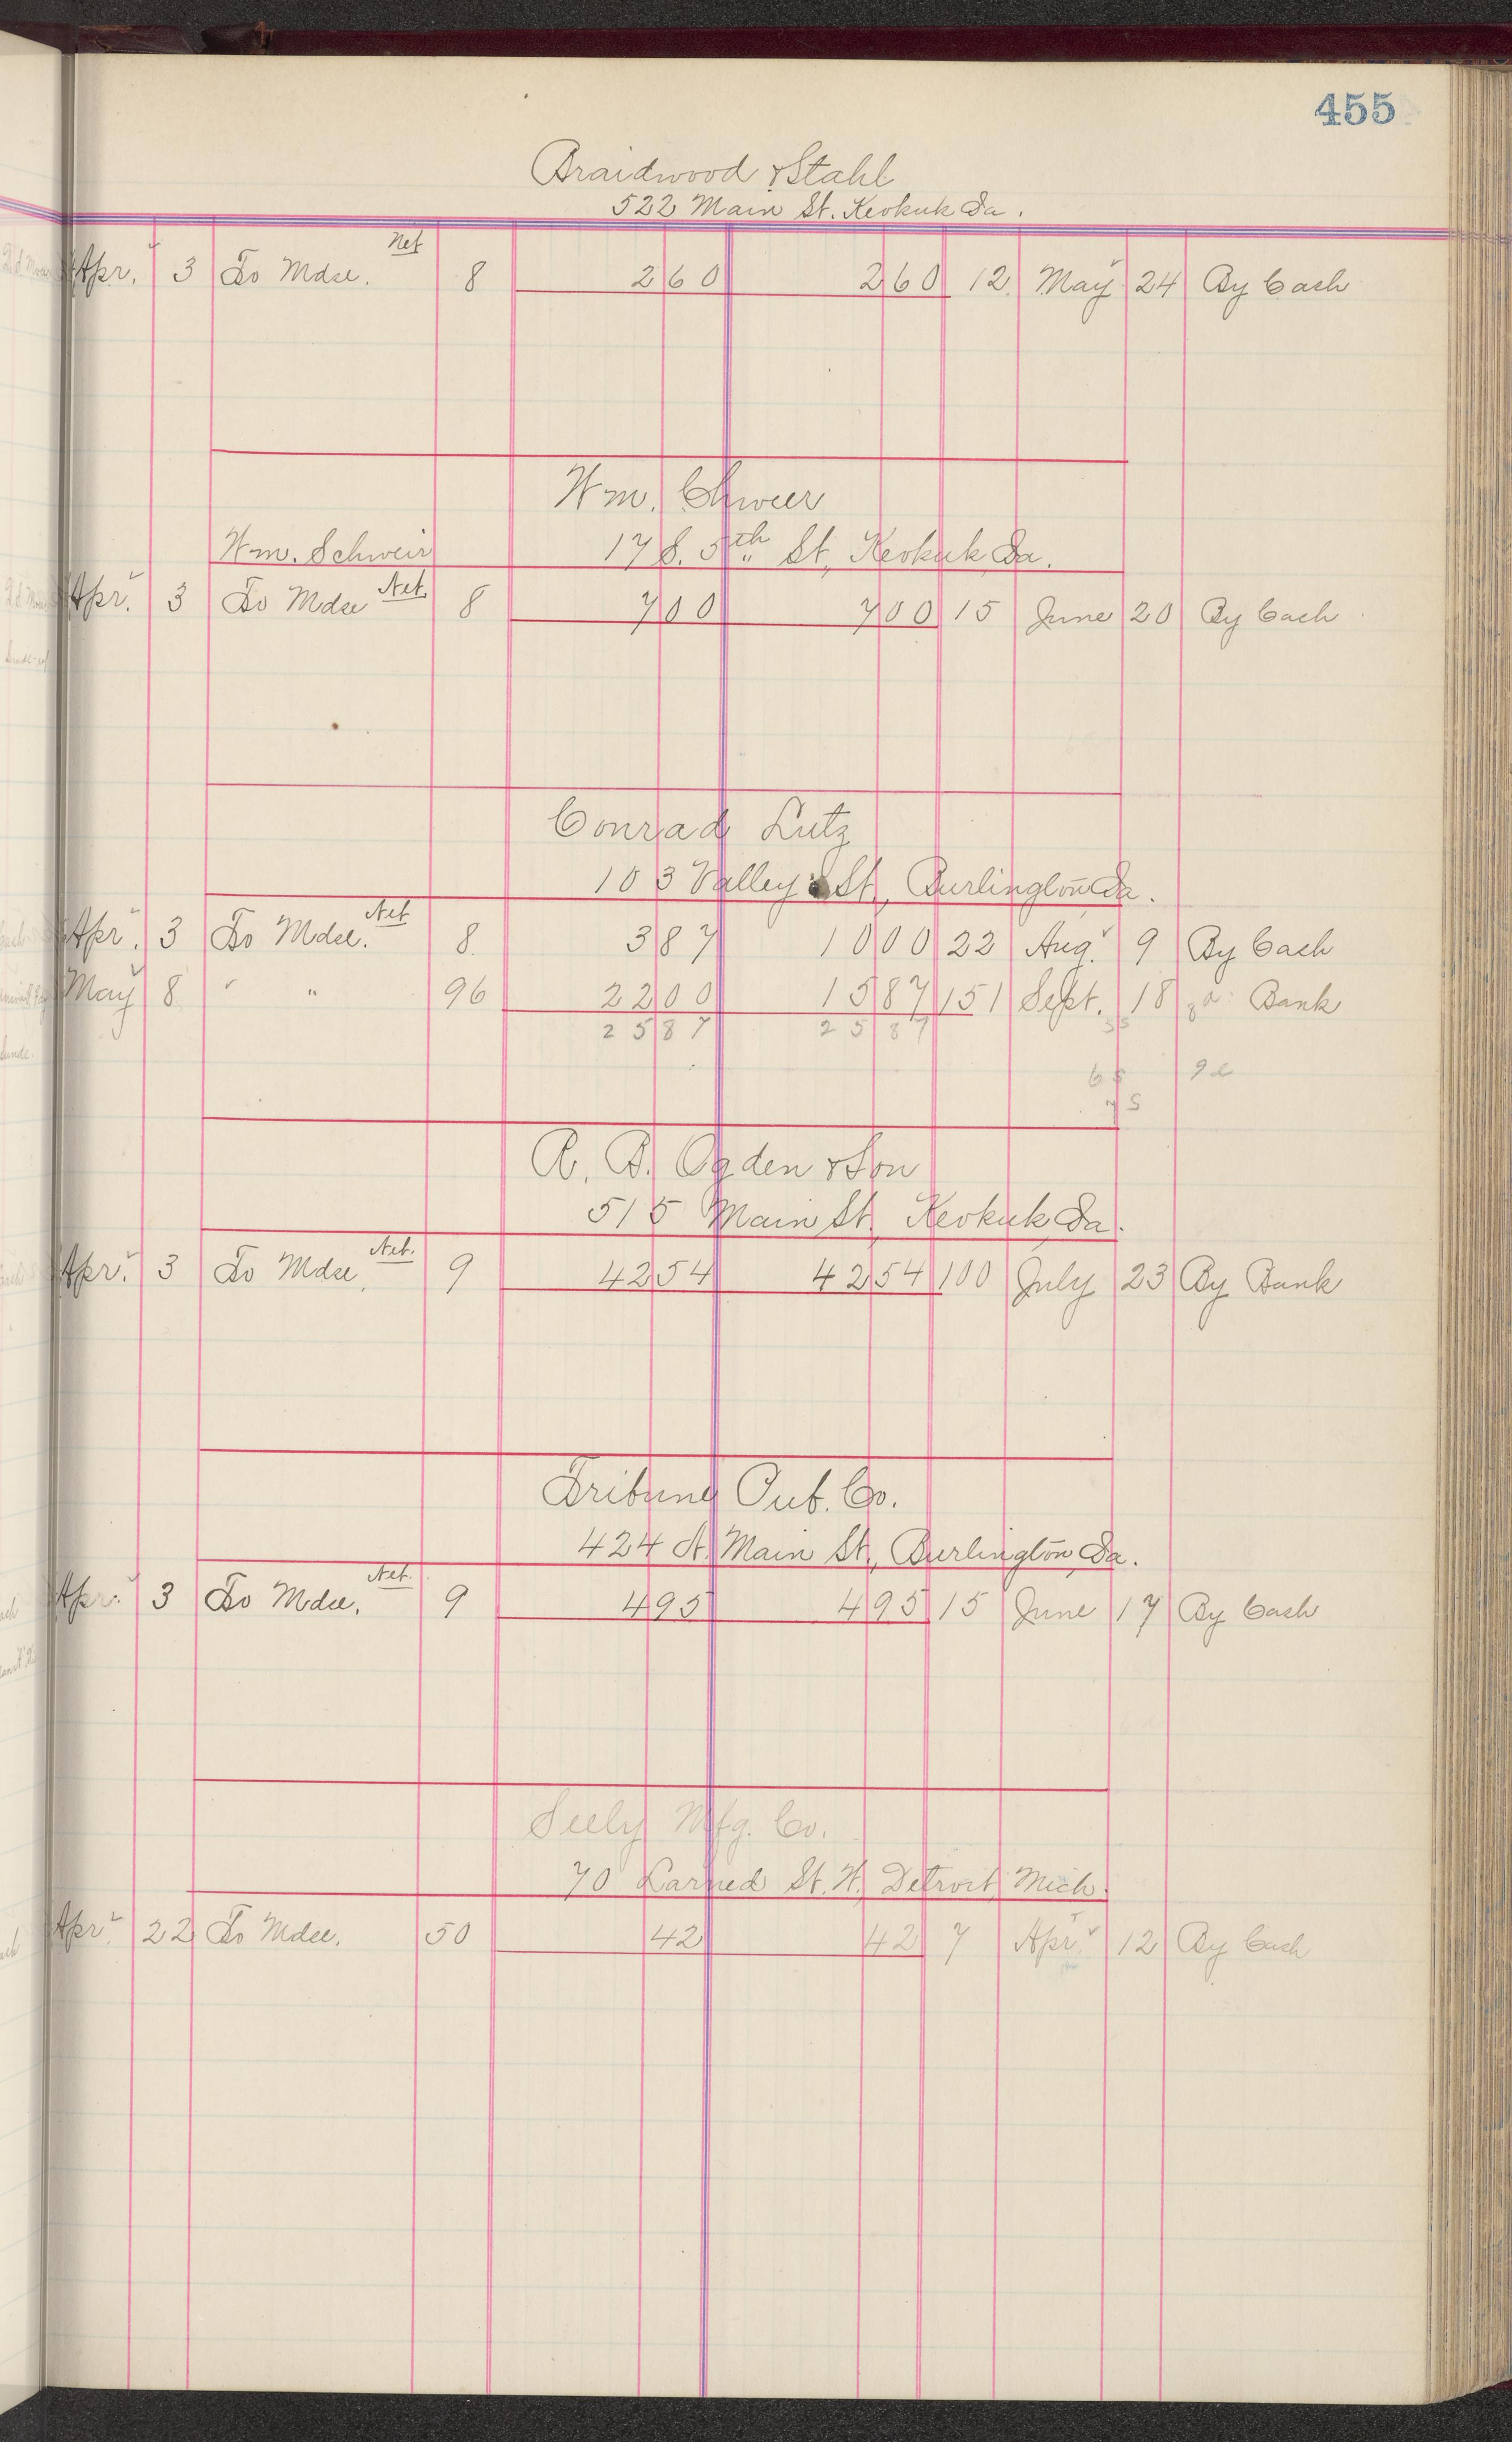 455
Braidwood & Stahl
522 Main St. Keokuk Ia.
Net
Apr. 3 To Mdse. 8 260 260 12 May 24 By Cash
Wm. Chweer
Wm. Schweir 17 S. 5th St, Keokuk Ia.
Apr. 3 To Mdse Net. 8 700 700 15 June 20 By Cash
Conrad Lutz
103 Valley St, Burlington Ia.
Apr. 3 To Mdse. Net 8. 387 1000 22 Aug. 9 By Cash
May 8 " " 96 2200 1587 151 Sept. 18 Bank
2587 2587 35
65
75
R. B. Ogden & Son
515 Main St, Keokuk, Ia.
Apr. 3 To Mdse, Net. 9 4254 4254 100 July 23 By Bank
Tribune Pub. Co.
424 N. Main St., Burlington, Ia.
Apr. 3 To Mdse. Net. 9 495 495 15 June 17 By Cash
Seely Mfg. Co.
70 Larned St. W, Detroit, Mich.
Apr. 22 To Mdse. 50 42 42 7 Apr. 12 By Cash